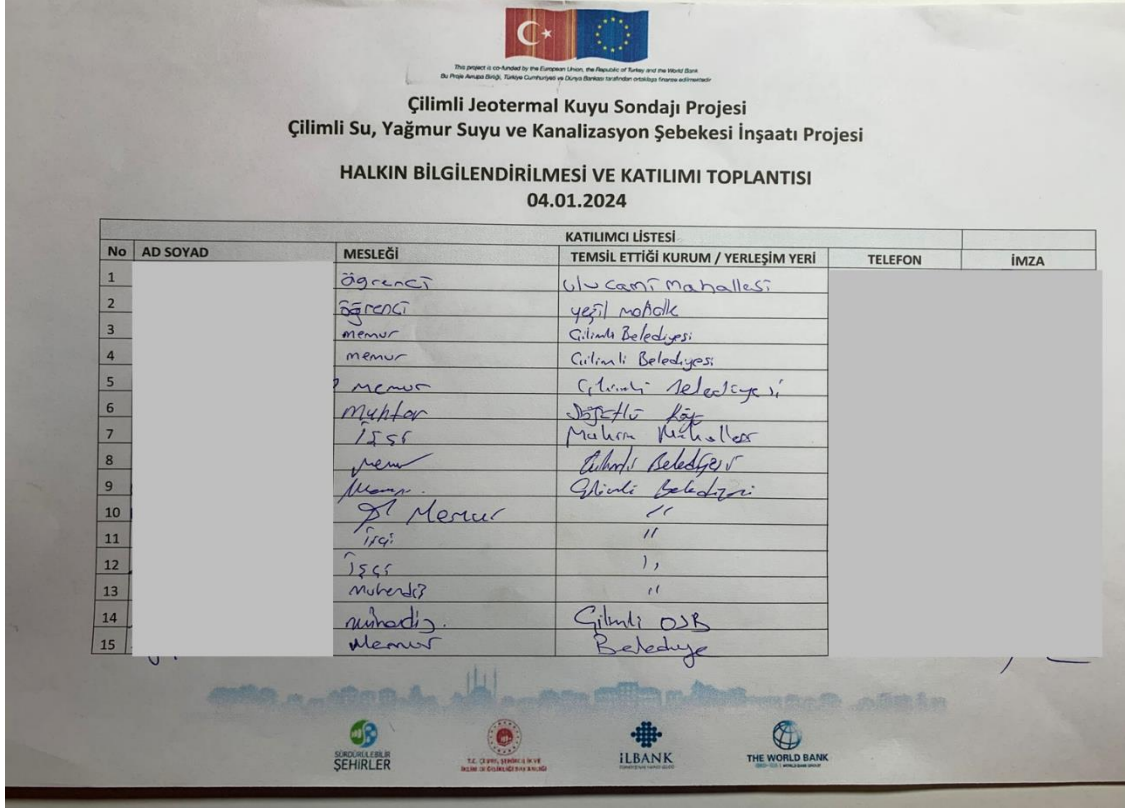 This project is co-funded by the European Union, the Republic of Turkey and the World Bank
Bu Proje Avrupa Birliği, Türkiye Cumhuriyeti ve Dünya Bankası tarafından ortaklaşa finanse edilmektedir
Çilimli Jeotermal Kuyu Sondajı Projesi
Çilimli Su, Yağmur Suyu ve Kanalizasyon Şebekesi İnşaatı Projesi
HALKIN BİLGİLENDİRİLMESİ VE KATILIMI TOPLANTISI
04.01.2024
KATILIMCI LİSTESİ
No AD SOYAD MESLEĞİ TEMSİL ETTİĞİ KURUM / YERLEŞİM YERİ TELEFON İMZA
1 öğrenci ulucami mahallesi
2 öğrenci yeşil mahalle
3 memur Çilimli Belediyesi
4 memur Çilimli Belediyesi
5 memur Çilimli Belediyesi
6 Muhtar Köy
7 İşçi
8 memur Çilimli Belediyesi
9 Çilimli Belediyesi
10 Memur "
11 işçi "
12 İşçi "
13 Mühendis "
14 mühendis. Çilimli OSB
15 Memur Belediye
SÜRDÜRÜLEBİLİR
ŞEHİRLER
T.C. ÇEVRE, ŞEHİRCİLİK VE
İKLİM DEĞİŞİKLİĞİ BAKANLIĞI
İLBANK
THE WORLD BANK